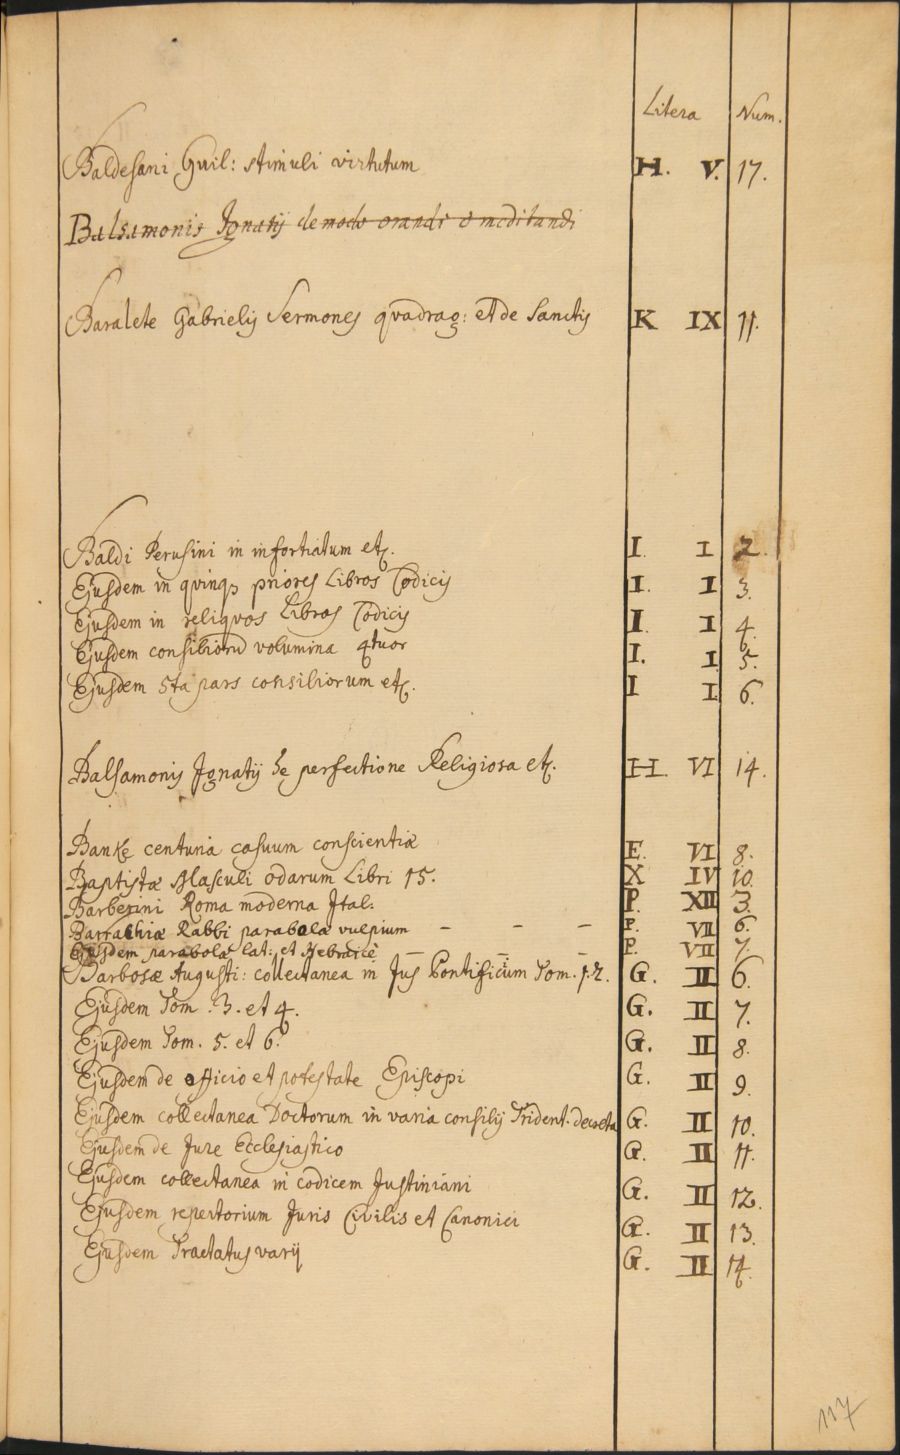 Litera Num.
Baldesani Guil: stimuli virtutum H. V. 17.
Balsamonis Ignatij de modo orandi & meditandi
Baralete Gabrielis Sermones qvadrag: et de Sanctis K IX 11.
Baldi Perusini in infortiatum etc. I. I 2.
Ejusdem in qvinq3 priores Libros Codicis I. I 3.
Ejusdem in reliqvos Libros Codicis I. I 4.
Ejusdem consiliorū volumina 4tuor I. I. 5.
Ejusdem 5ta pars consiliorum etc. I I. 6.
Balsamonis Ignatij de perfectione Religiosa etc. H. VI 14.
Banke centuria casuum conscientiæ E. VI 8.
Baptistæ Masculi odarum Libri 15. X IV 10.
Barberini Roma moderna Ital: P. XII 3.
Barrachiæ Rabbi parabola vulpium - - - P. VII 6.
Ejusdem parabolæ lat: et Hebraicè - - - P. VII 7.
Barbosæ Augusti: collectanea in Jus Pontificium Tom. 1.2. G. II 6.
Ejusdem Tom. 3. et 4. G. II 7.
Ejusdem Tom. 5. et 6. G. II 8.
Ejusdem de officio et potestate Episcopi G. II 9.
Ejusdem collectanea Doctorum in varia consilij Trident. decreta G. II 10.
Ejusdem de Jure Ecclesiastico G. II 11.
Ejusdem collectanea in codicem Justiniani G. II 12.
Ejusdem repertorium Juris Civilis et Canonici G. II 13.
Ejusdem Tractatus varij G. II 14.
117